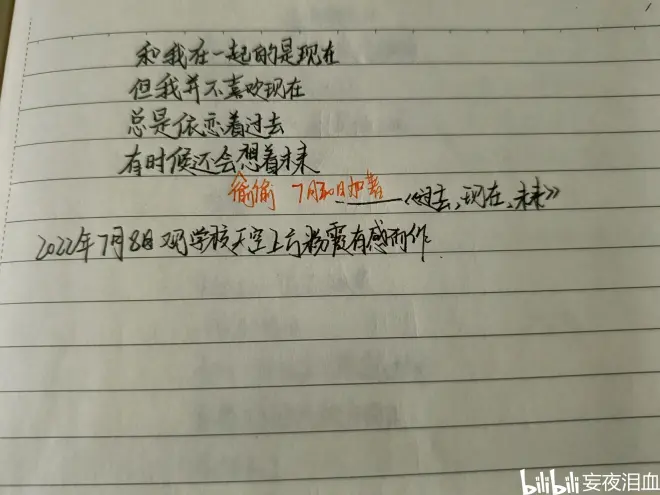 和我在一起的是现在
但我并不喜欢现在
总是依恋着过去
有时候还会想着未来
偷偷 7月30日加着
——《过去,现在,未来》
2022年7月8日观学校天空上方粉霞有感而作
bilibili 妄夜泪血